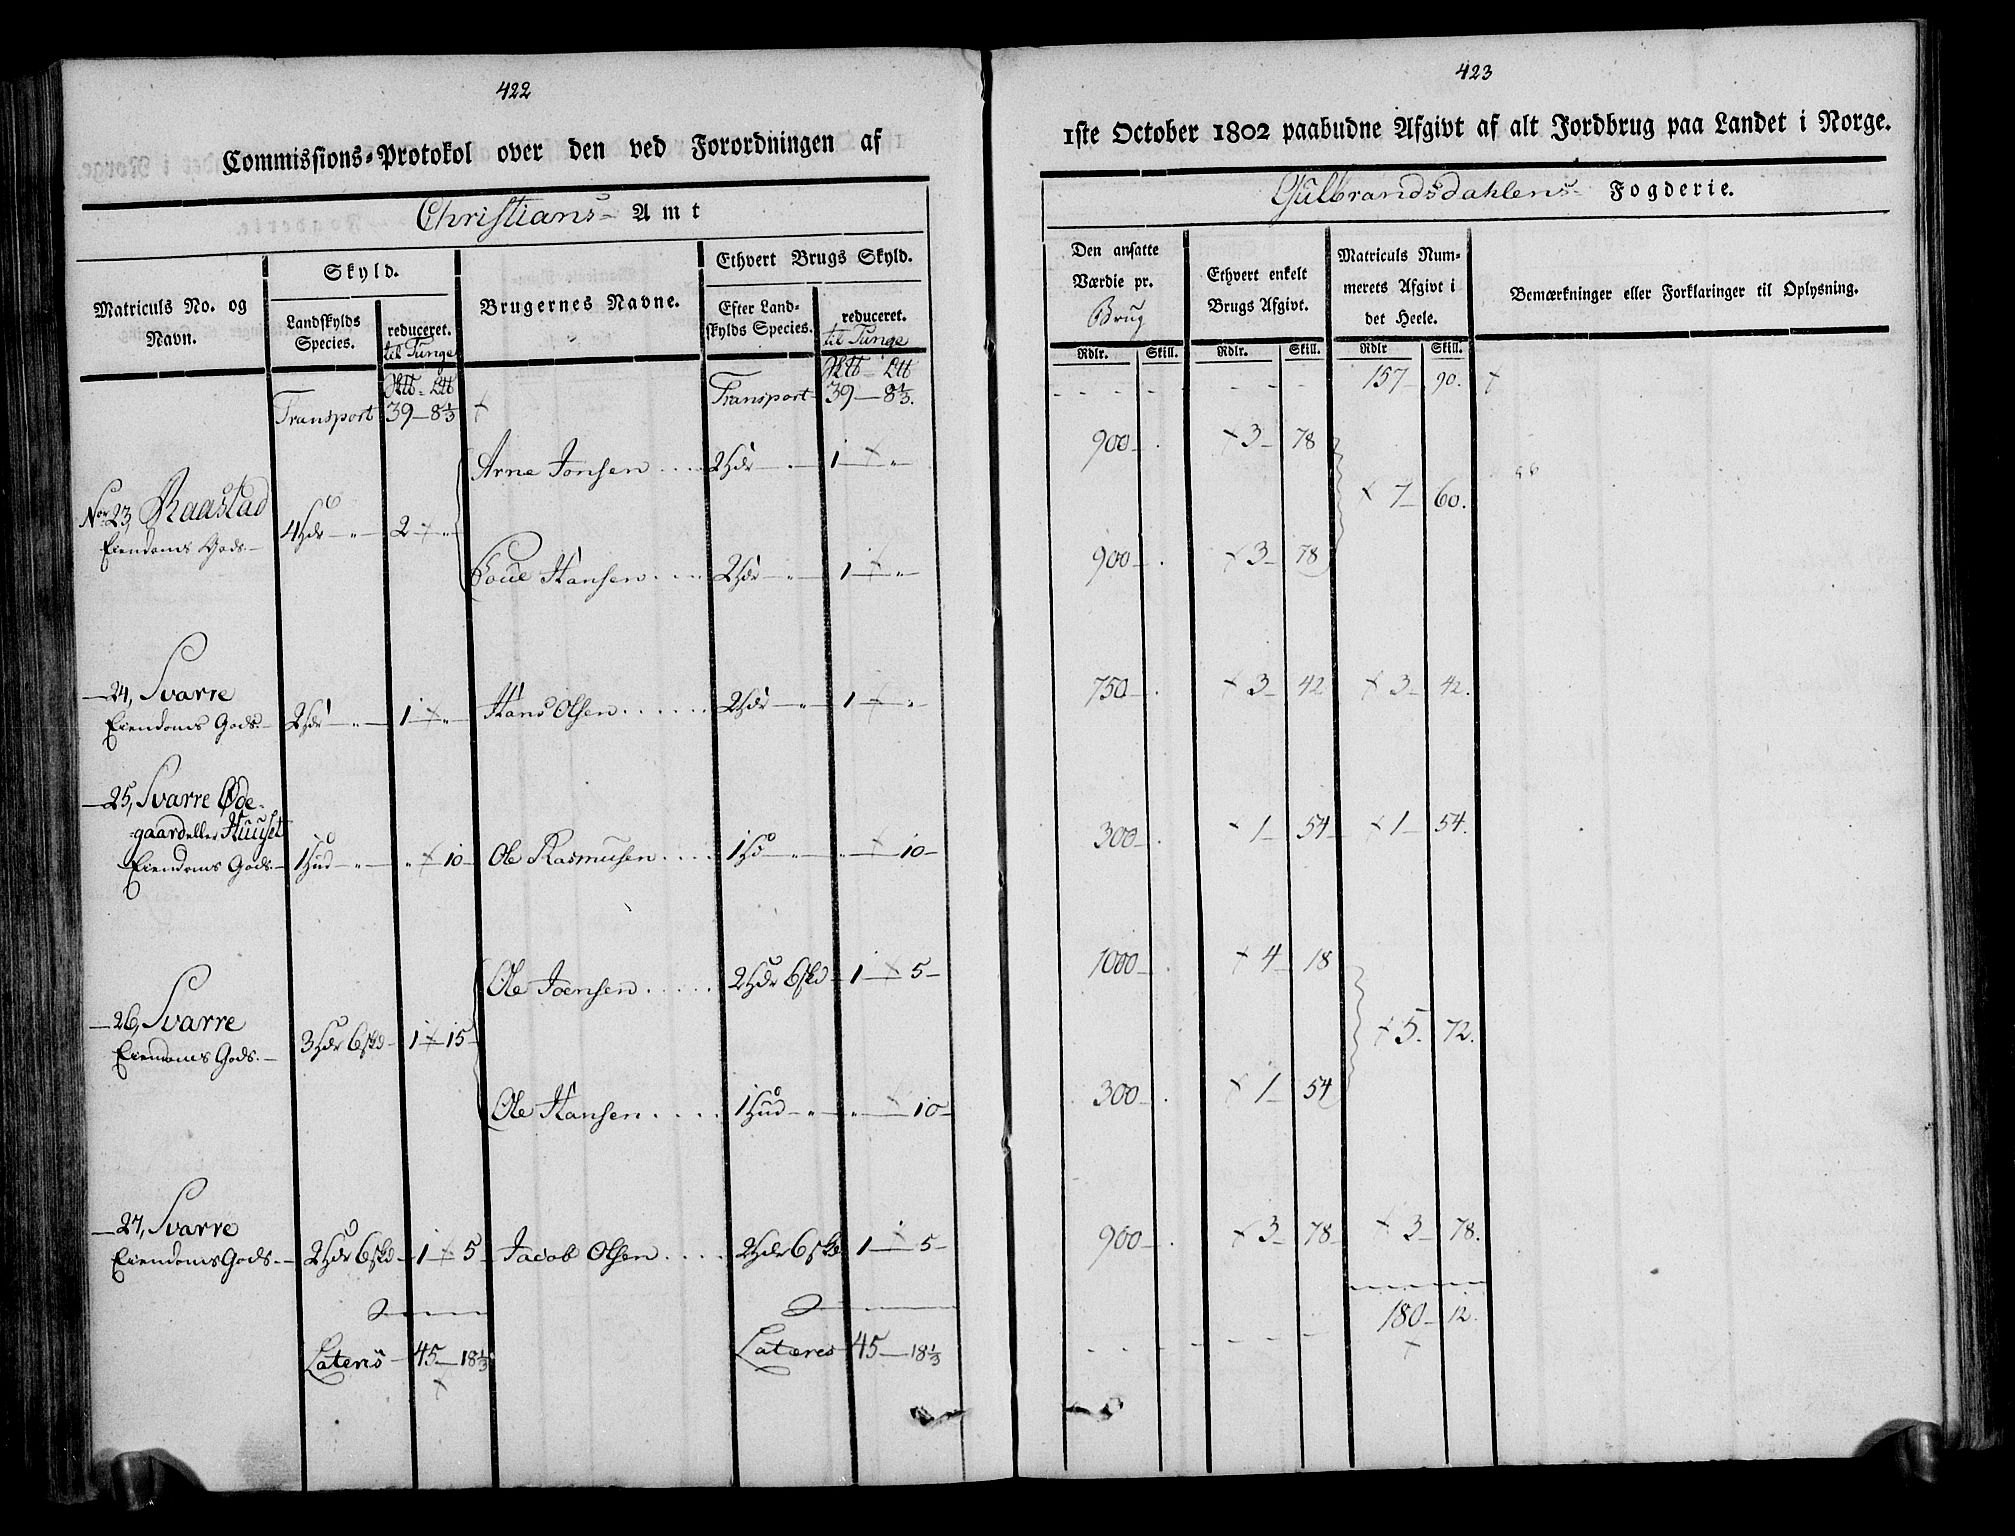 422
Commissions-Protokol over den ved Forordningen af
Christians- Amt
Matriculs No. og Navn.
Skyld.
Landskylds Species.
reduceret. til Tunge
Brugernes Navne.
Ethvert Brugs Skyld.
Efter Landskylds Species.
reduceret. til Tunge
Transport 39 — 8 1/3 Transport 39 — 8 1/3.
Arne Jonsen . . . . 2 Hdr — „ — 1 — „ —
No 23, Raastad
Eiendoms Gods — 4 Hdr — „ — 2 — „ —
Poul Hansen . . . . 2 Hdr — „ — 1 — „ —
— 24, Svarre
Eiendoms Gods — 2 Hdr — „ — 1 — „ — Hans Olsen . . . . . . 2 Hdr — „ — 1 — „ —
— 25, Svarre Øde-
-gaard eller Huuset
Eiendoms Gods — 1 Hud — „ — „ — 10 — Ole Rasmusen . . . . 1 Hd — „ — „ — 10 —
Ole Joensen . . . . . 2 Hdr 6 skd — 1 — 5 —
— 26, Svarre
Eiendoms Gods — 3 Hdr 6 skd — 1 — 15 —
Ole Hansen . . . . 1 Hud — „ — „ — 10 —
— 27, Svarre
Eiendoms Gods — 2 Hdr 6 skd — 1 — 5 — Jacob Olsen . . . . 2 Hdr 6 skd 1 — 5 —
Lateris — 45 — 18 1/3 Lateres 45 — 18 1/3
423
1ste October 1802 paabudne Afgivt af alt Jordbrug paa Landet i Norge.
Gulbrandsdahlens- Fogderie.
Den ansatte Værdie pr. Brug
Ethvert enkelt Brugs Afgivt.
Matriculs Nummerets Afgivt i det Heele.
Bemærkninger eller Forklaringer til Oplysning.
Rdlr. Skill. Rdlr. Skill. Rdlr Skill.
157 — 90.
900 — . 3 — 78
7 — 60.
900 — . 3 — 78
750 — . 3 — 42 3 — 42.
300 — . 1 — 54 — 1 — 54.
1000 — . 4 — 18
5. 72.
300 — . 1 — 54
900 — . 3 — 78 — 3 — 78.
180 — 12.